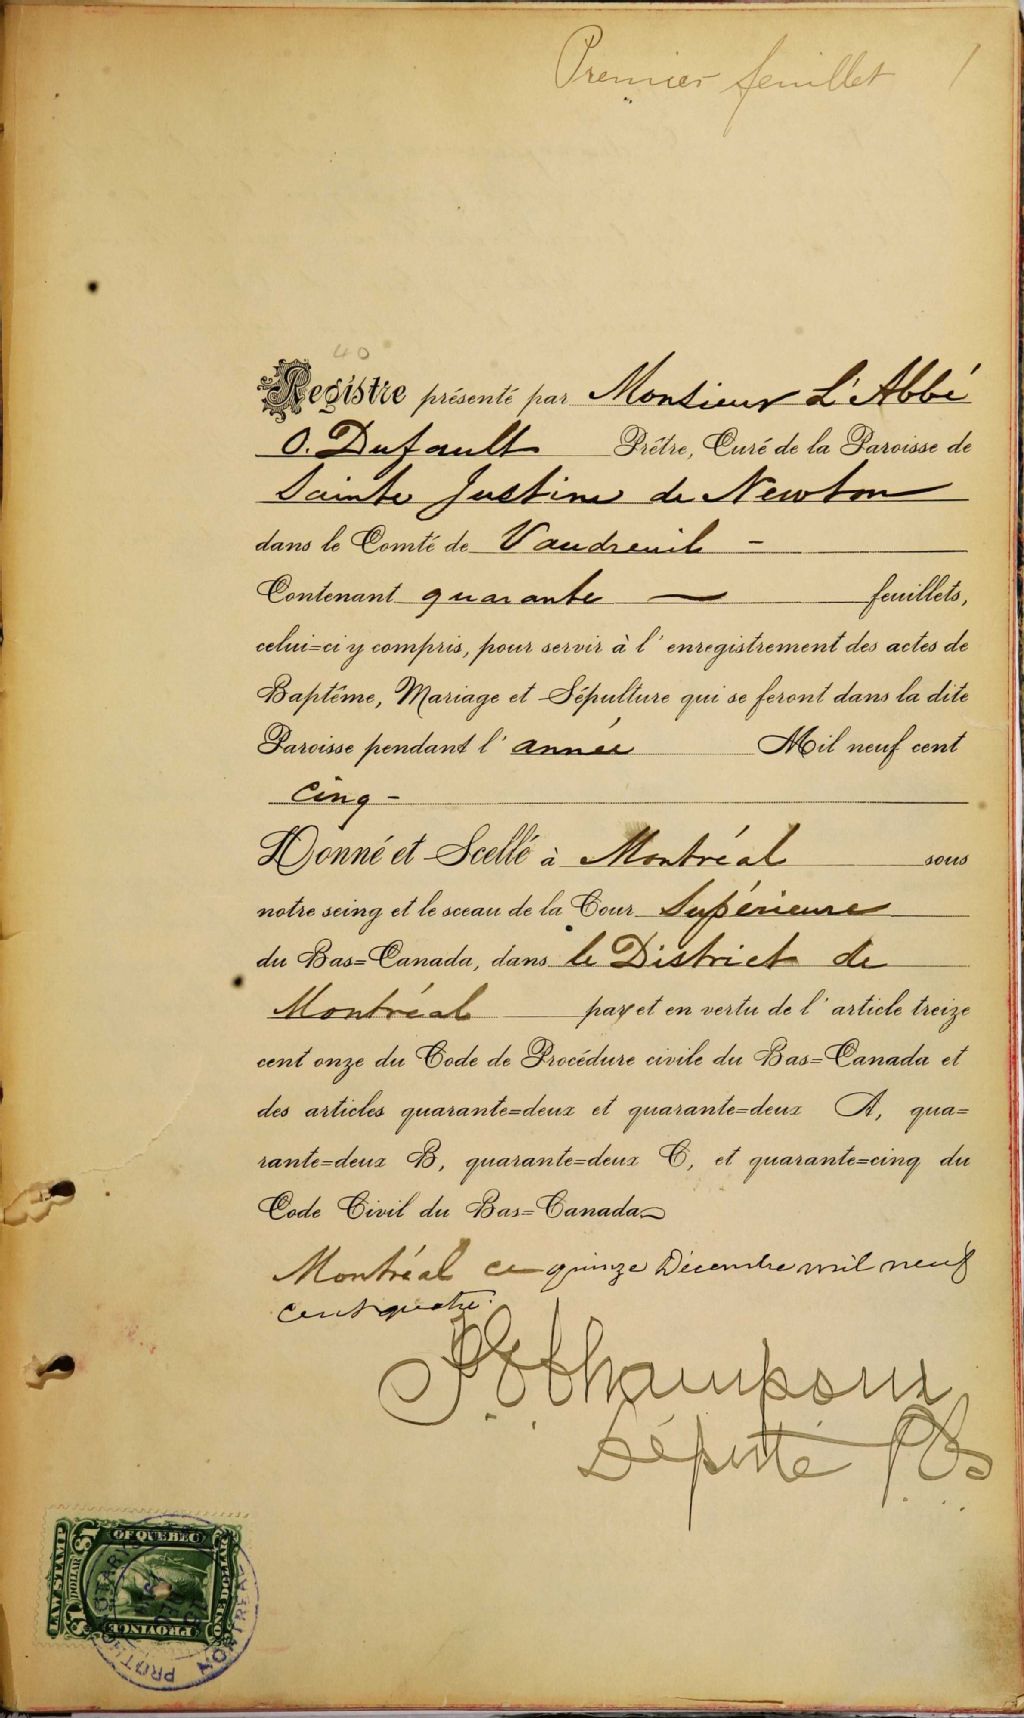 Premier feuillet 1
40
Registre présenté par Monsieur L'Abbé
O. Dufault Prêtre, Curé de la Paroisse de
Sainte Justine de Newton
dans le Comté de Vaudreuil -
Contenant quarante — feuillets,
celui=ci y compris, pour servir à l'enregistrement des actes de
Baptême, Mariage et Sépulture qui se feront dans la dite
Paroisse pendant l'année Mil neuf cent
cinq -
Donné et Scellé à Montréal sous
notre seing et le sceau de la Cour Supérieure
du Bas=Canada, dans le District de
Montréal par et en vertu de l'article treize
cent onze du Code de Procédure civile du Bas=Canada et
des articles quarante=deux et quarante=deux A, qua=
rante=deux B, quarante=deux C, et quarante=cinq du
Code Civil du Bas=Canada
Montréal ce quinze Décembre mil neuf
cent quatre.
Champoux
Député
LAW STAMP
$1 DOLLAR $1
OF QUEBEC
PROVINCE
ONE DOLLAR
PROTHONOTARY
MONTREAL